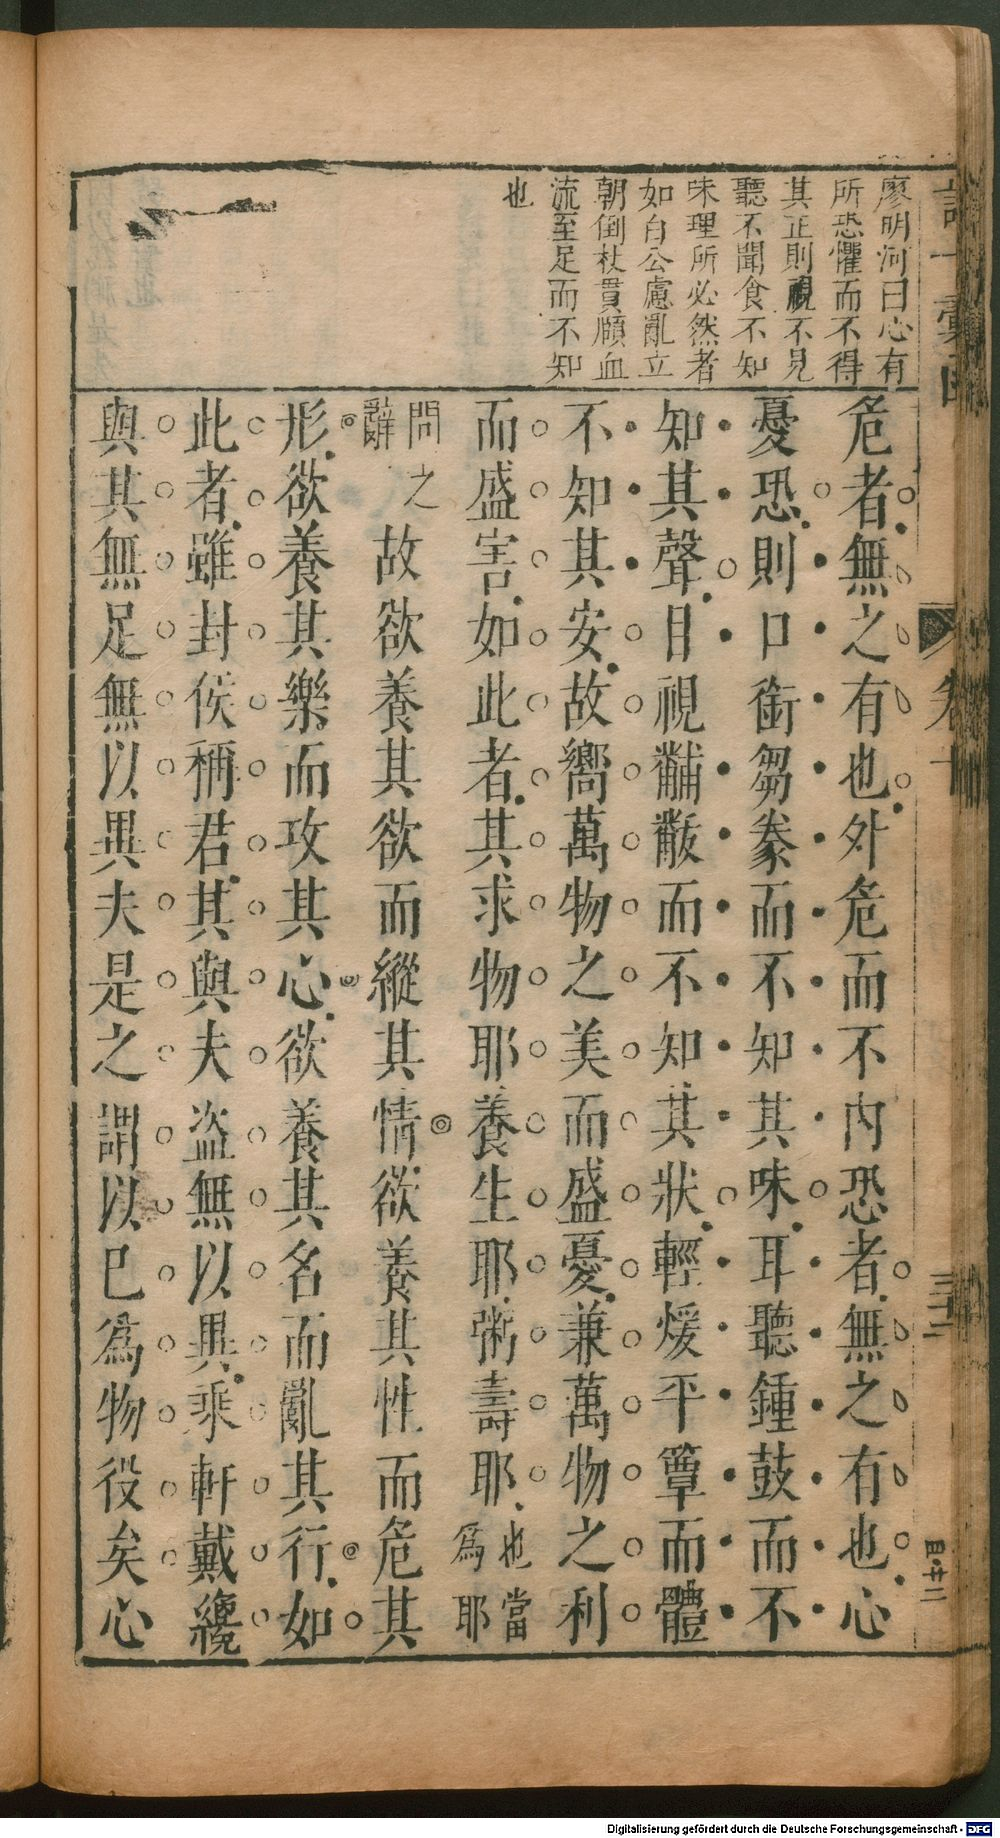 廖明河曰心有
所恐懼而不得
其正則視不見
聽不聞食不知
味理所必然者
如白公慮亂立
朝倒杖貫頤血
流至足而不知
也
危者無之有也外危而不內恐者無之有也心
憂恐則口銜芻豢而不知其味耳聽鍾鼓而不
知其聲目視黼黻而不知其狀輕煖平簟而體
不知其安故嚮萬物之美而盛憂兼萬物之利
而盛害如此者其求物耶養生耶粥壽耶也當為耶
問之辭故欲養其欲而縱其情欲養其性而危其
形欲養其樂而攻其心欲養其名而亂其行如
此者雖封侯稱君其與夫盜無以異乘軒戴纔
與其無足無以異夫是之謂以已為物役矣心
卷十
三十二
Digitalisierung gefördert durch die Deutsche Forschungsgemeinschaft - DFG